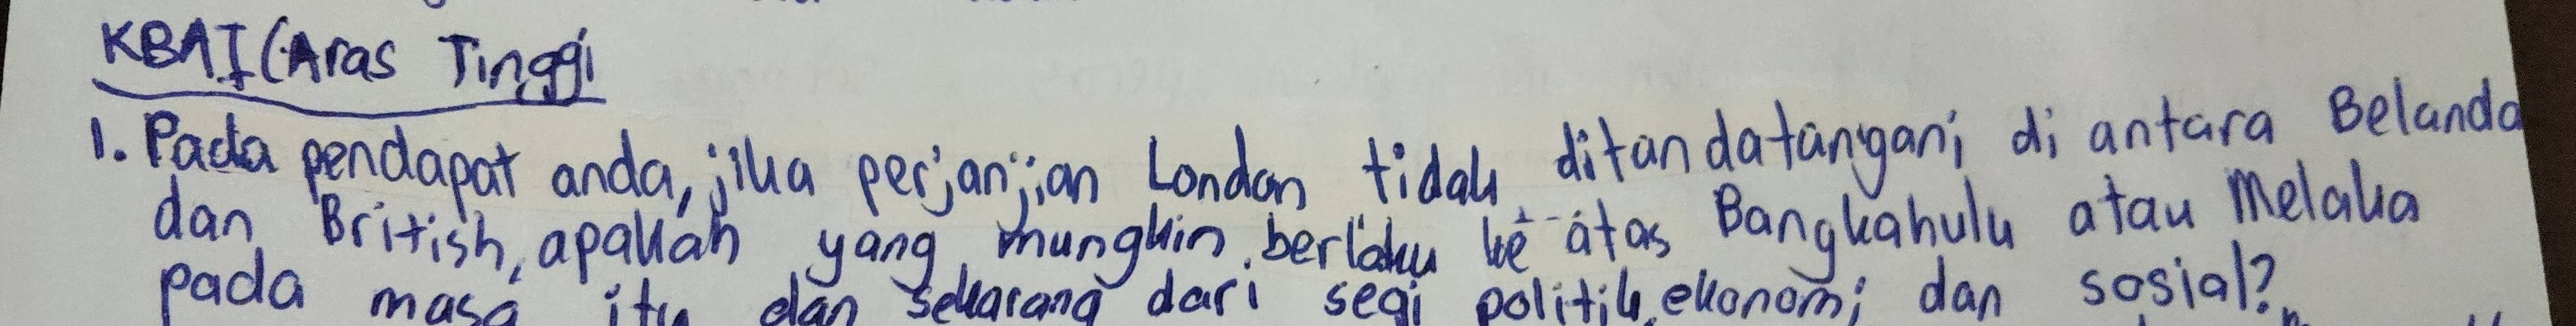 KBAT (Aras Tinggi
1. Pada pendapat anda, jika perjanjian London tidak ditandatangani di antara Belanda
dan British, apakah yang mungkin berlaku ke atas Bangkahulu atau Melaka
pada masa itu dan sekarang dari segi politik, ekonomi dan sosial?